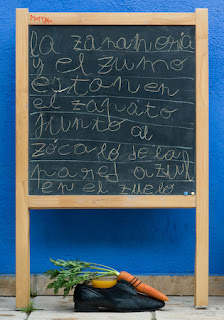 la zanahoria
y el zumo
están en
el zapato
junto al
zócalo de la
pared azul
en el zuelo